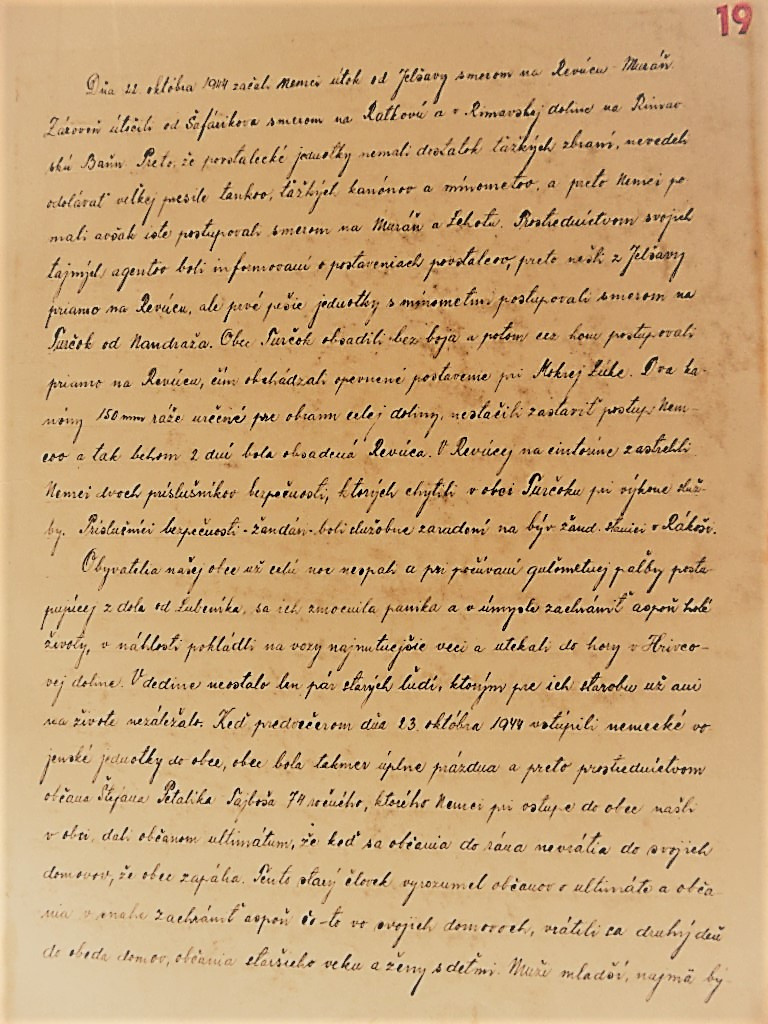 19
Dňa 22. októbra 1944 začali Nemci útok od Jelšavy smerom na Revúcu - Muráň.
Zároveň útočili od Šafárikova smerom na Ratkovú a v Rimavskej doline na Rimav-
skú Baňu. Preto, že povstalecké jednotky nemali dostatok ťažkých zbraní, nevedeli
odolávať veľkej presile tankov, ťažkých kanónov a mínometov, a preto Nemci po
mali avšak iste postupovali smerom na Muráň a Lehotu. Prostredníctvom svojich
tajných agentov boli informovaní o postaveniach povstalcov, preto nešli z Jelšavy
priamo na Revúcu, ale prvé pešie jednotky s mínometmi postupovali smerom na
Turčok od Nandraža. Obec Turčok obsadili bez boja a potom cez horu postupovali
priamo na Revúcu, čím obchádzali opevnené postavenie pri Mokrej Lúke. Dva ka-
nóny 150 mm ráže určené pre obranu celej doliny, nestačili zastaviť postup Nem-
cov a tak behom 2 dní bola obsadená Revúca. V Revúcej na cintoríne zastrelili
Nemci dvoch príslušníkov bezpečnosti, ktorých chytili v obci Turčoku pri výkone služ-
by. Príslušníci bezpečnosti - žandári - boli služobne zaradení na býv. žand. stanici v Rákoši.
Obyvatelia našej obce už celú noc nespali a pri počúvaní guľometnej paľby postu-
pujúcej z dola od Lubeníka, sa ich zmocnila panika a v úmysle zachrániť aspoň holé
životy, v náhlosti pokládli na vozy najnutnejšie veci a utekali do hory v Hrivco-
vej doline. V dedine neostalo len pár starých ľudí, ktorým pre ich starobu už ani
na živote nezáležalo. Keď predvečerom dňa 23. októbra 1944 vstúpili nemecké vo
jenské jednotky do obce, obec bola takmer úplne prázdna a preto prostredníctvom
občana Štefana Petalika 74 ročného, ktorého Nemci pri vstupe do obce našli
v obci, dali občanom ultimátum, že keď sa občania do rána nevrátia do svojich
domovov, že obec zapália. Tento starý človek vyrozumel občanov o ultimáte a obča-
nia v snahe zachrániť aspoň čo-to vo svojich domovoch, vrátili sa druhý deň
do obeda domov, občania staršieho veku a ženy s deťmi. Muži mladší, najmä bý-